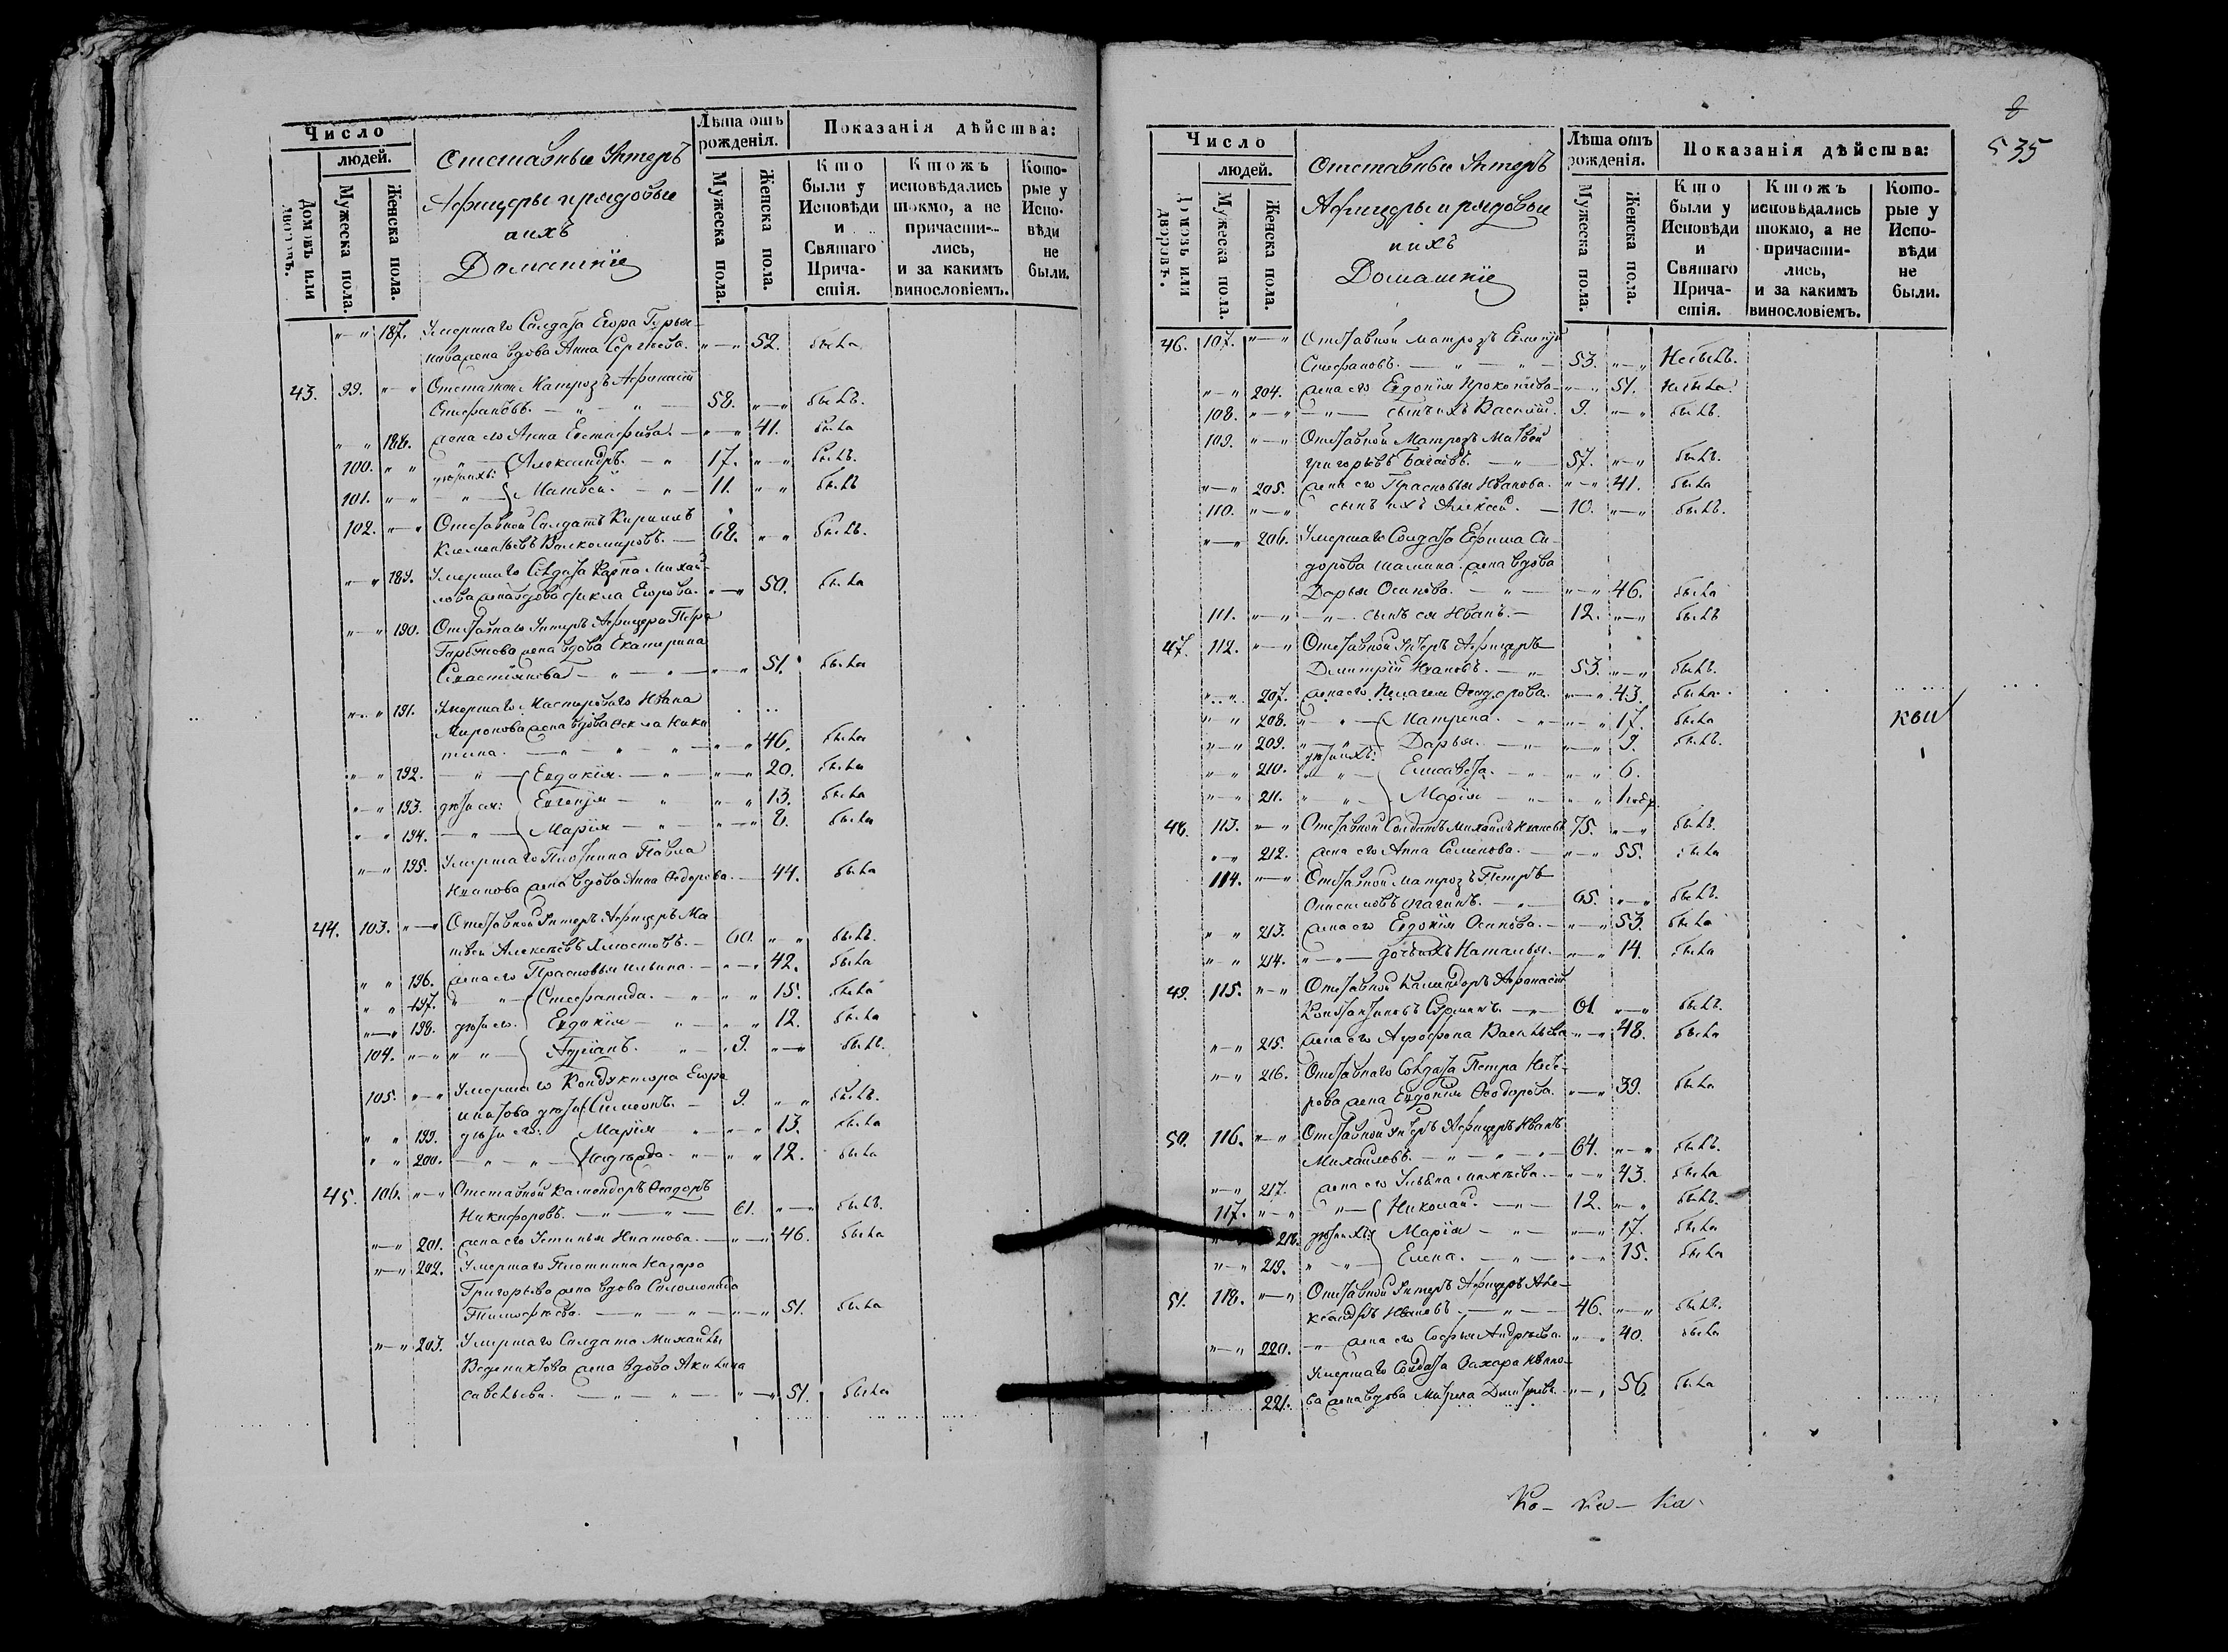 Число
людей.
Домовъ или дворовъ.
Мужеска пола.
Женска пола.
Отставные Унтеръ
Афицеры и рядовые
ихъ
Домашніе
Лѣта отъ
рожденія.
Мужеска пола.
Женска пола.
Показанія дѣйства:
Кто
были у
Исповѣди
и
Святаго
Прича-
стія.
Ктожъ
исповѣдались
токмо, а не
причасти-
лись,
и за какимъ
винословіемъ.
Кото-
рые у
Испо-
вѣди
не
были.
187. Умершаго Салдата Егора
жена вдова Анна Сергѣева. 52. была
43. 99. Отставной Матрозъ Афанасій
Стефановъ. 58. былъ.
188. жена его Анна Евстафіева. 41. была
100. Александръ. 17. былъ.
дѣти ихъ:
101. Матвей. 11. былъ
102. Отставной Салдатъ Кирилъ
68. былъ.
189. Умершаго Солдата Карпа Михай-
лова жена вдова Фекла Егорова. 50. была
190. Отставнаго Унтеръ Афицера Петра
жена вдова Екатерина
51. была
191. Умершаго Мастероваго Ивана
Миронова жена вдова Фекла Ники
тина. 46. была
192. Евдокія. 20. была
193. дѣти ея: Евгенія 13. была
194. Марія 8. была
195. Умершаго Плотника Павла
Иванова жена вдова Анна Федорова. 44. была
44. 103. Отставной Унтеръ Афицеръ Ма
твей Алексѣевъ 60. былъ.
196. жена его Прасковья Ильина. 42. была
197. Стефанида. 15. была
198. дѣти его. Евдокія 12. была
104. 9. былъ.
105. Умершаго Кондуктора Егора
Симеонъ. 9. былъ.
199. дѣти его: Марія 13. была
200. Надежда. 12. была
45. 106. Отставной Камендоръ Феодоръ
Никифоровъ. 61. былъ.
201. жена его Устинья Игнатова. 46. была
202. Умершаго Плотника Назара
Григорьева жена вдова Соломонида
Тимофѣева. 51. была
203. Умершаго Салдата Михайлы
Веденихтова жена вдова Акилина
Савельева. 51. была
535
Число
людей.
Домовъ или дворовъ.
Мужеска пола.
Женска пола.
Отставные Унтеръ
Афицеры и рядовые
и ихъ
Домашніе
Лѣта отъ
рожденія.
Мужеска пола.
Женска пола.
Показанія дѣйства:
Кто
были у
Исповѣди
и
Святаго
Прича-
стія.
Ктожъ
исповѣдались
токмо, а не
причасти-
лись,
и за какимъ
винословіемъ.
Кото-
рые у
Испо-
вѣди
не
были.
46. 107. Отставной Матрозъ
Стефановъ. 53. Небылъ.
204. жена его Евдокія Прокопіева 51. Небыла
108. сынъ ихъ Василій. 9. былъ.
109. Отставной Матрозъ Матвей
Григорьевъ 57. былъ.
205. жена его Прасковья Иванова. 41. была
110. сынъ ихъ Алексей. 10. былъ.
206. Умершаго Солдата Ефима Си-
дорова жена вдова
Дарья Осипова. 46. была
111. сынъ ея Иванъ. 12. былъ
47. 112. Отставной Унтеръ Афицеръ
Димитрій Ивановъ. 53. былъ.
207. жена его Пелагея Феодорова. 43. была
208. Матрена. 17. была
209. Дарья. 9. былъ.
дѣти ихъ:
210. Елисавета. 6.
211. Марія 1
48. 113. Отставной Солдатъ Михаилъ Ивановъ 75. былъ.
212. жена его Анна Семенова. 55. была
114. Отставной Матрозъ Петръ
65. былъ.
213. жена его Евдокія Осипова. 53. была
214. дочь ихъ Наталья. 14. была
49. 115. Отставной Камендоръ Афанасій
Константиновъ 61. былъ.
215. жена его Васильева 48. была
216. Отставнаго Солдата Петра
жена Евдокія Феодорова. 39. была
50. 116. Отставной Унтеръ Афицеръ Иванъ
Михайловъ. 64. былъ.
217. жена его 43. была
117. Николай. 12. былъ.
218. дѣти ихъ: Марія 17. была
219. Елена. 15. была
51. 118. Отставной Унтеръ Афицеръ Але-
ксандръ Ивановъ 46. былъ.
220. жена его Софья Андреева. 40. была
Умершаго Солдата Захара
221. ва жена вдова Матрена 56. была